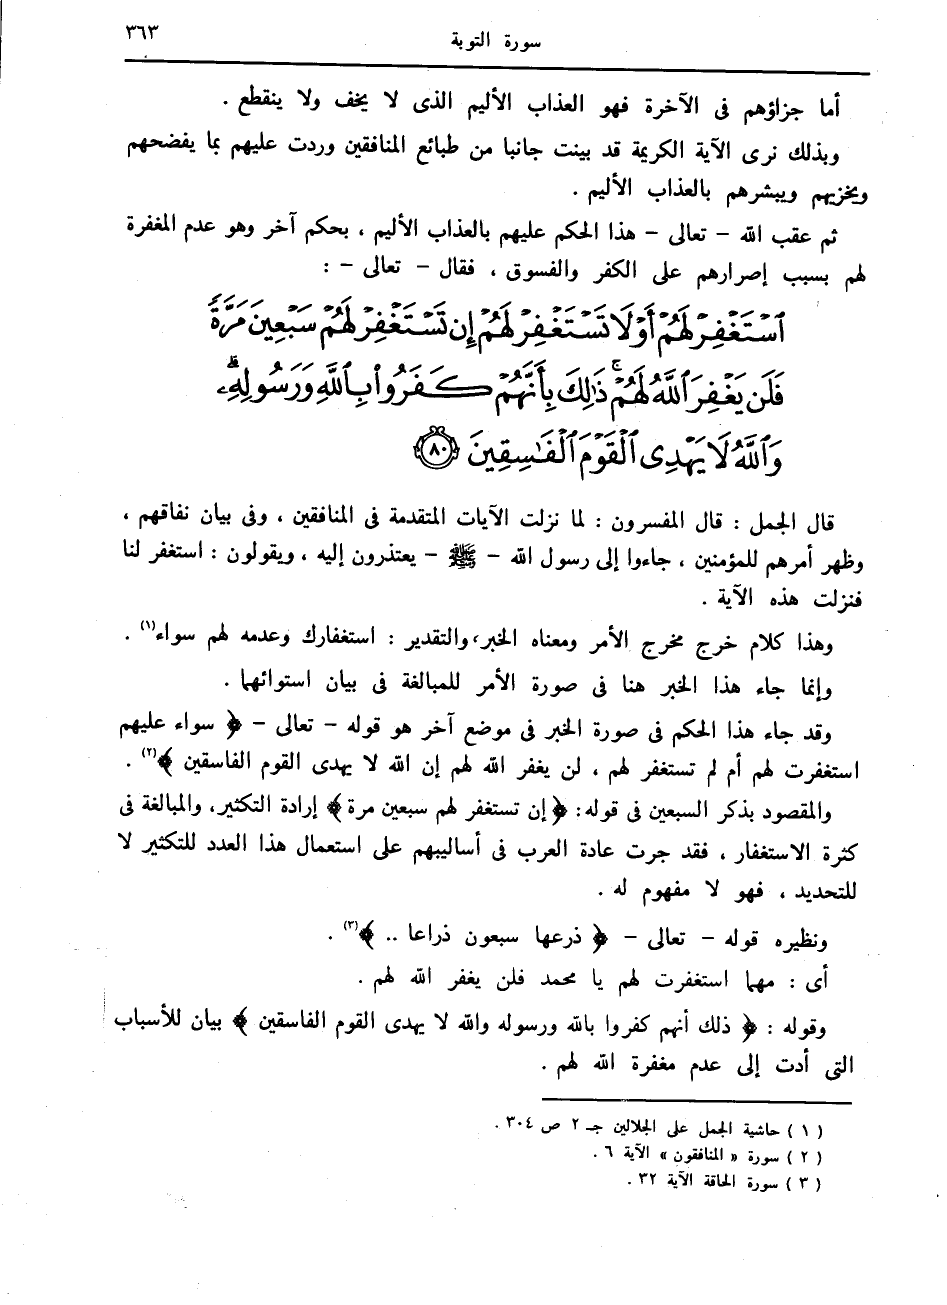 سورة التوبة ٣٦٣
أما جزاؤهم فى الآخرة فهو العذاب الأليم الذى لا يخف ولا ينقطع .
وبذلك نرى الآية الكريمة قد بينت جانبا من طبائع المنافقين وردت عليهم بما يفضحهم
ويخزيهم ويبشرهم بالعذاب الأليم .
ثم عقب الله – تعالى – هذا الحكم عليهم بالعذاب الأليم ، بحكم آخر وهو عدم المغفرة
لهم بسبب إصرارهم على الكفر والفسوق ، فقال – تعالى – :
ٱسْتَغْفِرْ لَهُمْ أَوْ لَا تَسْتَغْفِرْ لَهُمْ إِن تَسْتَغْفِرْ لَهُمْ سَبْعِينَ مَرَّةً
فَلَن يَغْفِرَ ٱللَّهُ لَهُمْ ۚ ذَٰلِكَ بِأَنَّهُمْ كَفَرُوا۟ بِٱللَّهِ وَرَسُولِهِۦ ۗ
وَٱللَّهُ لَا يَهْدِى ٱلْقَوْمَ ٱلْفَـٰسِقِينَ ٨٠
قال الجمل : قال المفسرون : لما نزلت الآيات المتقدمة فى المنافقين ، وفى بيان نفاقهم ،
وظهر أمرهم للمؤمنين ، جاءوا إلى رسول الله – ﷺ – يعتذرون إليه ، ويقولون : استغفر لنا
فنزلت هذه الآية .
وهذا كلام خرج مخرج الأمر ومعناه الخبر، والتقدير : استغفارك وعدمه لهم سواء(١) .
وإنما جاء هذا الخبر هنا فى صورة الأمر للمبالغة فى بيان استوائهما .
وقد جاء هذا الحكم فى صورة الخبر فى موضع آخر هو قوله – تعالى – ﴿ سواء عليهم
استغفرت لهم أم لم تستغفر لهم ، لن يغفر الله لهم إن الله لا يهدى القوم الفاسقين ﴾(٢) .
والمقصود بذكر السبعين فى قوله : ﴿ إن تستغفر لهم سبعين مرة ﴾ إرادة التكثير، والمبالغة فى
كثرة الاستغفار ، فقد جرت عادة العرب فى أساليبهم على استعمال هذا العدد للتكثير لا
للتحديد ، فهو لا مفهوم له .
ونظيره قوله – تعالى – ﴿ ذرعها سبعون ذراعا .. ﴾(٣) .
أى : مهما استغفرت لهم يا محمد فلن يغفر الله لهم .
وقوله : ﴿ ذلك أنهم كفروا بالله ورسوله والله لا يهدى القوم الفاسقين ﴾ بيان للأسباب
التى أدت إلى عدم مغفرة الله لهم .
( ١ ) حاشية الجمل على الجلالين جـ ٢ ص ٣٠٤ .
( ٢ ) سورة « المنافقون » الآية ٦ .
( ٣ ) سورة الحاقة الآية ٣٢ .